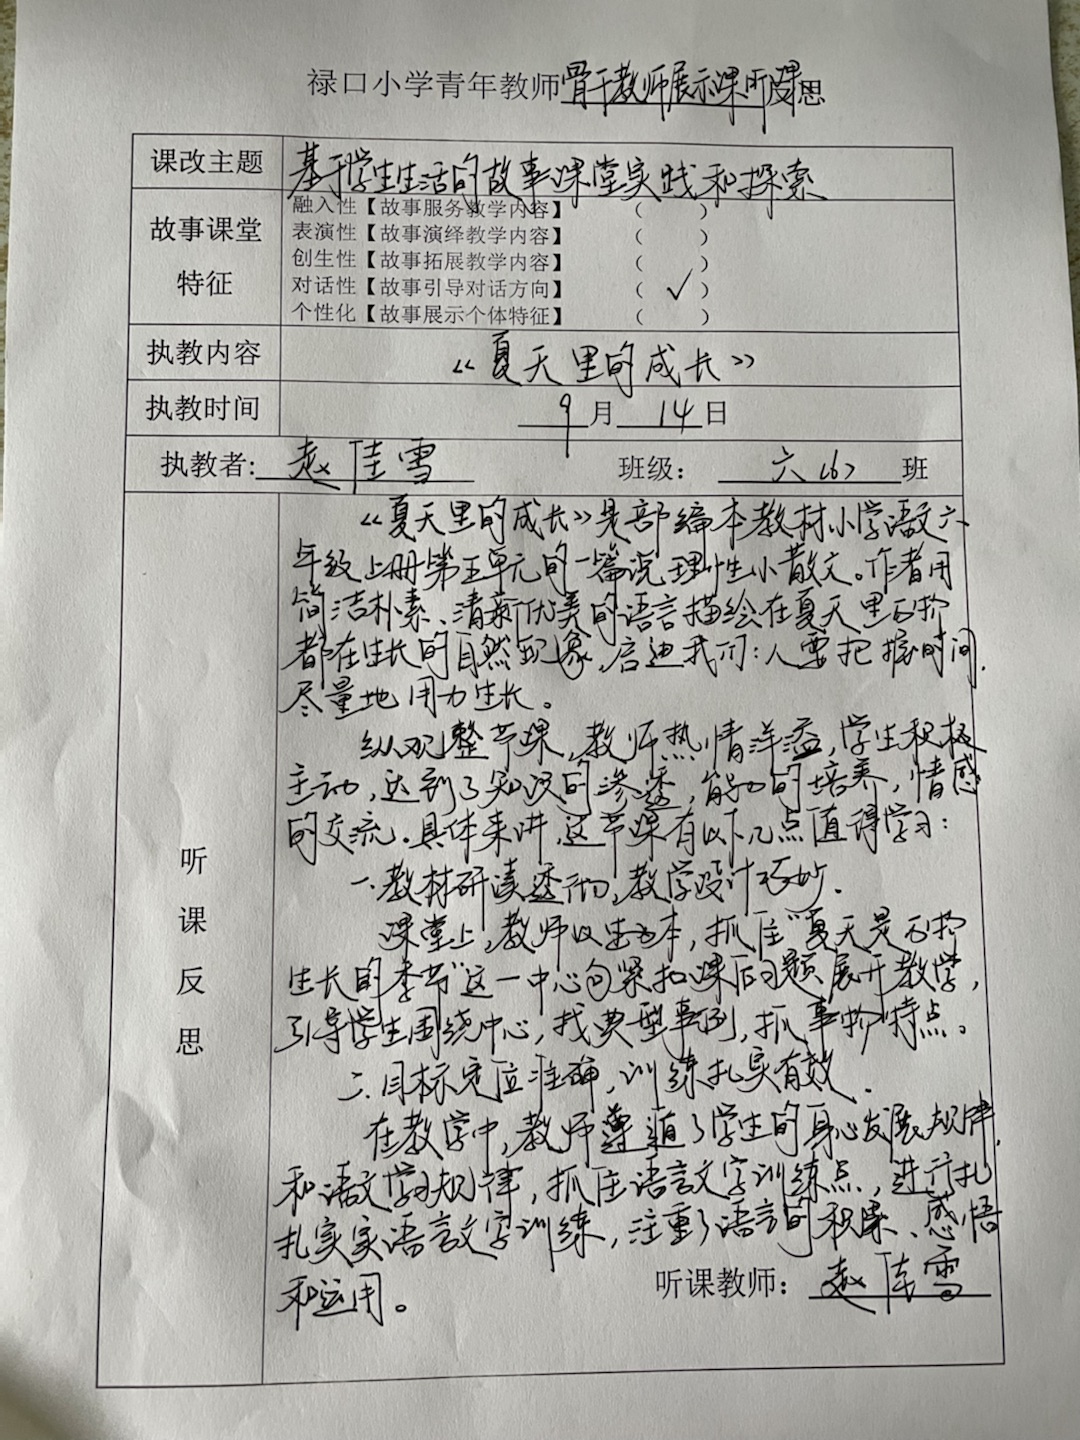 禄口小学青年教师骨干教师展示课听课反思
课改主题 基于学生生活的故事课堂实践和探索
故事课堂特征
融入性【故事服务教学内容】 （ ）
表演性【故事演绎教学内容】 （ ）
创生性【故事拓展教学内容】 （ ）
对话性【故事引导对话方向】 （ ✓ ）
个性化【故事展示个体特征】 （ ）
执教内容 《夏天里的成长》
执教时间 9月14日
执教者: 赵佳雪 班级: 六（6）班
听课反思
《夏天里的成长》是部编本教材小学语文六
年级上册第五单元的一篇说理性小散文。作者用
简洁朴素、清新优美的语言描绘在夏天里万物
都在生长的自然现象,启迪我们:人要把握时间,
尽量地用力生长。
纵观整节课,教师热情洋溢,学生积极
主动,达到了知识的渗透,能力的培养,情感
的交流.具体来讲,这节课有以下几点值得学习:
一.教材研读透彻,教学设计巧妙.
课堂上,教师以生为本,抓住“夏天是万物
生长的季节”这一中心句紧扣课后习题展开教学,
引导学生围绕中心,找典型事例,抓事物特点。
二.目标定位准确,训练扎实有效.
在教学中,教师遵循了学生的身心发展规律,
和语文学习规律,抓住语言文字训练点,进行扎
扎实实语言文字训练,注重了语言的积累、感悟
和运用。
听课教师: 赵佳雪